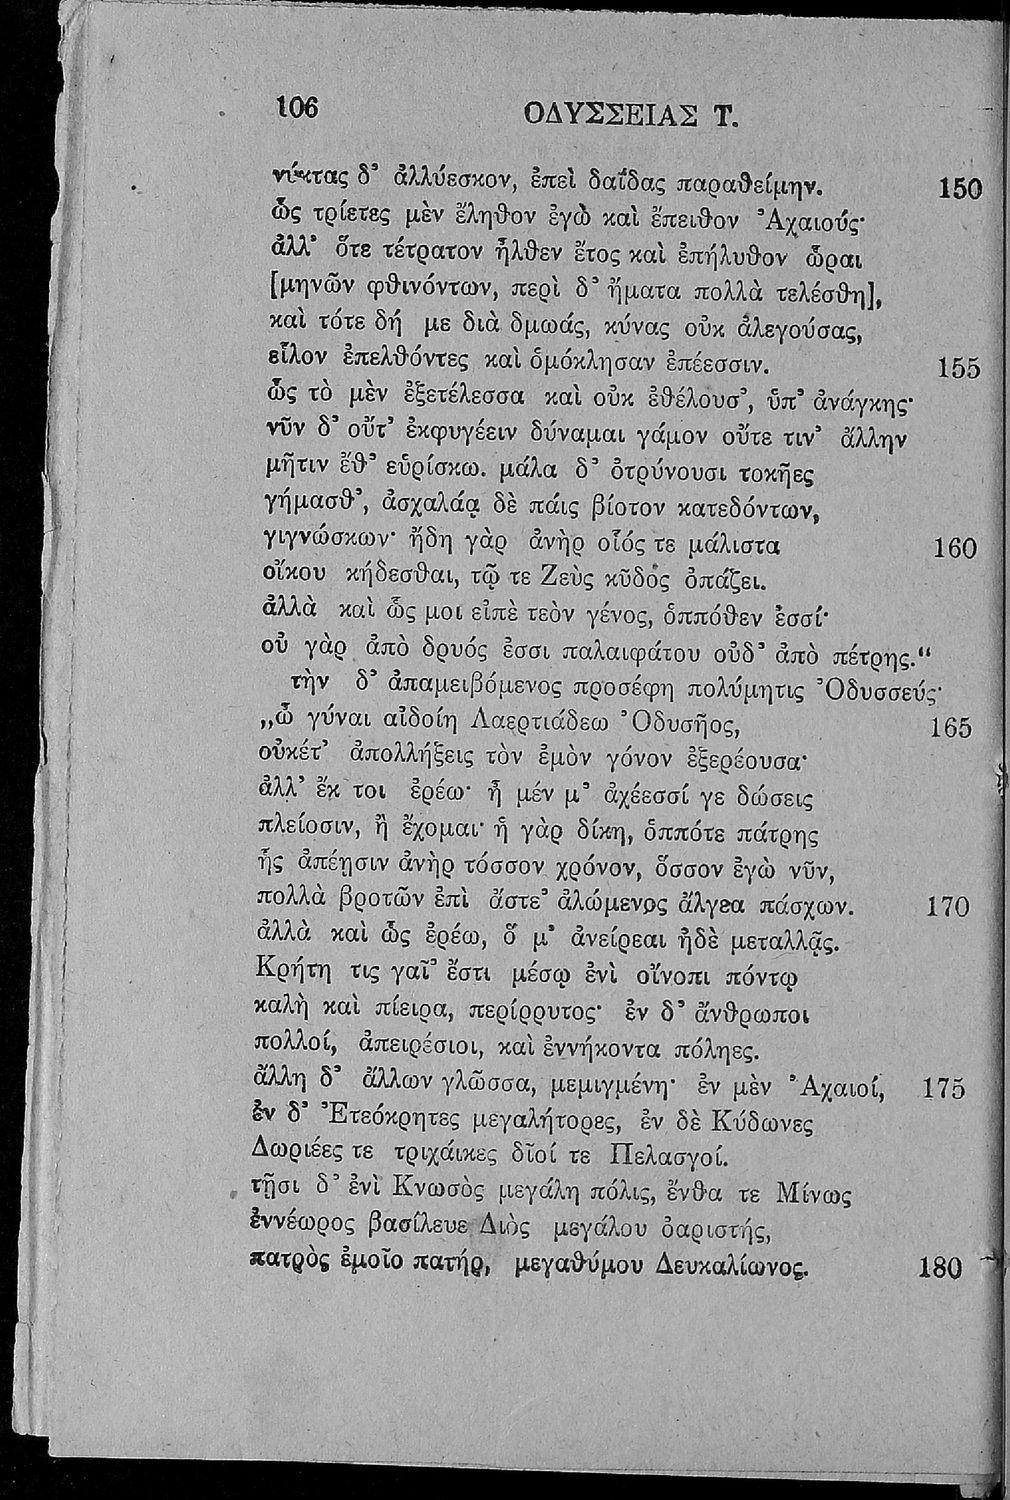 106 ΟΔΥΣΣΕΙΑΣ Τ.
νύκτας δ’ ἀλλύεσκον, ἐπεὶ δαΐδας παραθείμην. 150
ὣς τρίετες μὲν ἔληθον ἐγὼ καὶ ἔπειθον Ἀχαιούς·
ἀλλ’ ὅτε τέτρατον ἦλθεν ἔτος καὶ ἐπήλυθον ὧραι
[μηνῶν φθινόντων, περὶ δ’ ἤματα πολλὰ τελέσθη],
καὶ τότε δή με διὰ δμωάς, κύνας οὐκ ἀλεγούσας,
εἷλον ἐπελθόντες καὶ ὁμόκλησαν ἐπέεσσιν. 155
ὣς τὸ μὲν ἐξετέλεσσα καὶ οὐκ ἐθέλουσ’, ὑπ’ ἀνάγκης·
νῦν δ’ οὔτ’ ἐκφυγέειν δύναμαι γάμον οὔτε τιν’ ἄλλην
μῆτιν ἔθ’ εὑρίσκω. μάλα δ’ ὀτρύνουσι τοκῆες
γήμασθ’, ἀσχαλάᾳ δὲ πάις βίοτον κατεδόντων,
γιγνώσκων· ἤδη γὰρ ἀνὴρ οἷός τε μάλιστα 160
οἴκου κήδεσθαι, τῷ τε Ζεὺς κῦδος ὀπάζει.
ἀλλὰ καὶ ὥς μοι εἰπὲ τεὸν γένος, ὁππόθεν ἐσσί·
οὐ γὰρ ἀπὸ δρυός ἐσσι παλαιφάτου οὐδ’ ἀπὸ πέτρης.“
τὴν δ’ ἀπαμειβόμενος προσέφη πολύμητις Ὀδυσσεύς·
„ὦ γύναι αἰδοίη Λαερτιάδεω Ὀδυσῆος, 165
οὐκέτ’ ἀπολλήξεις τὸν ἐμὸν γόνον ἐξερέουσα·
ἀλλ’ ἔκ τοι ἐρέω· ἦ μέν μ’ ἀχέεσσί γε δώσεις
πλείοσιν, ἢ ἔχομαι· ἡ γὰρ δίκη, ὁππότε πάτρης
ἧς ἀπέῃσιν ἀνὴρ τόσσον χρόνον, ὅσσον ἐγὼ νῦν,
πολλὰ βροτῶν ἐπὶ ἄστε’ ἀλώμενος ἄλγεα πάσχων. 170
ἀλλὰ καὶ ὣς ἐρέω, ὅ μ’ ἀνείρεαι ἠδὲ μεταλλᾷς.
Κρήτη τις γαῖ’ ἔστι μέσῳ ἐνὶ οἴνοπι πόντῳ
καλὴ καὶ πίειρα, περίρρυτος· ἐν δ’ ἄνθρωποι
πολλοί, ἀπειρέσιοι, καὶ ἐννήκοντα πόληες.
ἄλλη δ’ ἄλλων γλῶσσα, μεμιγμένη· ἐν μὲν Ἀχαιοί, 175
ἐν δ’ Ἐτεόκρητες μεγαλήτορες, ἐν δὲ Κύδωνες
Δωριέες τε τριχάικες δῖοί τε Πελασγοί.
τῇσι δ’ ἐνὶ Κνωσὸς μεγάλη πόλις, ἔνθα τε Μίνως
ἐννέωρος βασίλευε Διὸς μεγάλου ὀαριστής,
πατρὸς ἐμοῖο πατήρ, μεγαθύμου Δευκαλίωνος. 180